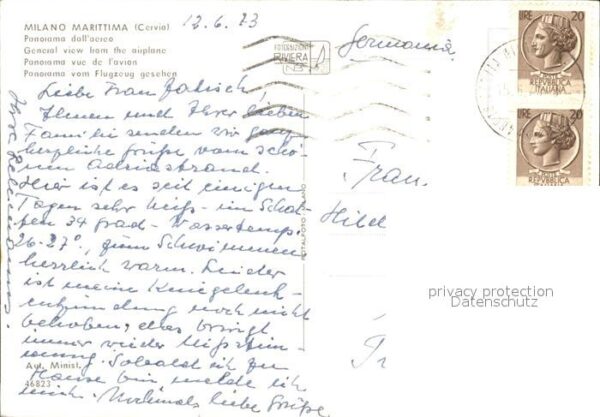 MILANO MARITTIMA (Cervia)
Panorama dall'aereo
General view from the airplane
Panorama vue de l'avion
Panorama vom Flugzeug gesehen
12.6.73
FOTOEDIZIONI
RIVIERA
Germania
LIRE 20
POSTE
REPUBBLICA
ITALIANA
LIRE 20
POSTE
REPUBBLICA
Liebe Frau
Ihnen und Ihrer lieben
Familie senden wir ganz
herzliche Grüße vom schö-
nen Adriastrand.
Hier ist es seit einigen
Tagen sehr heiß - im Schat-
ten 34 grad - Wassertemp.
26-27°, zum Schwimmen
herrlich warm. Leider
ist meine Kniegelenk-
entzündung noch nicht
behoben, das bringt
immer wieder Mißstim
mung. Sobald ich zu
Hause bin melde ich
mich. Nochmals liebe Grüße
Ihre
Frau
Hild
privacy protection
Datenschutz
Aut. Minist.
46823